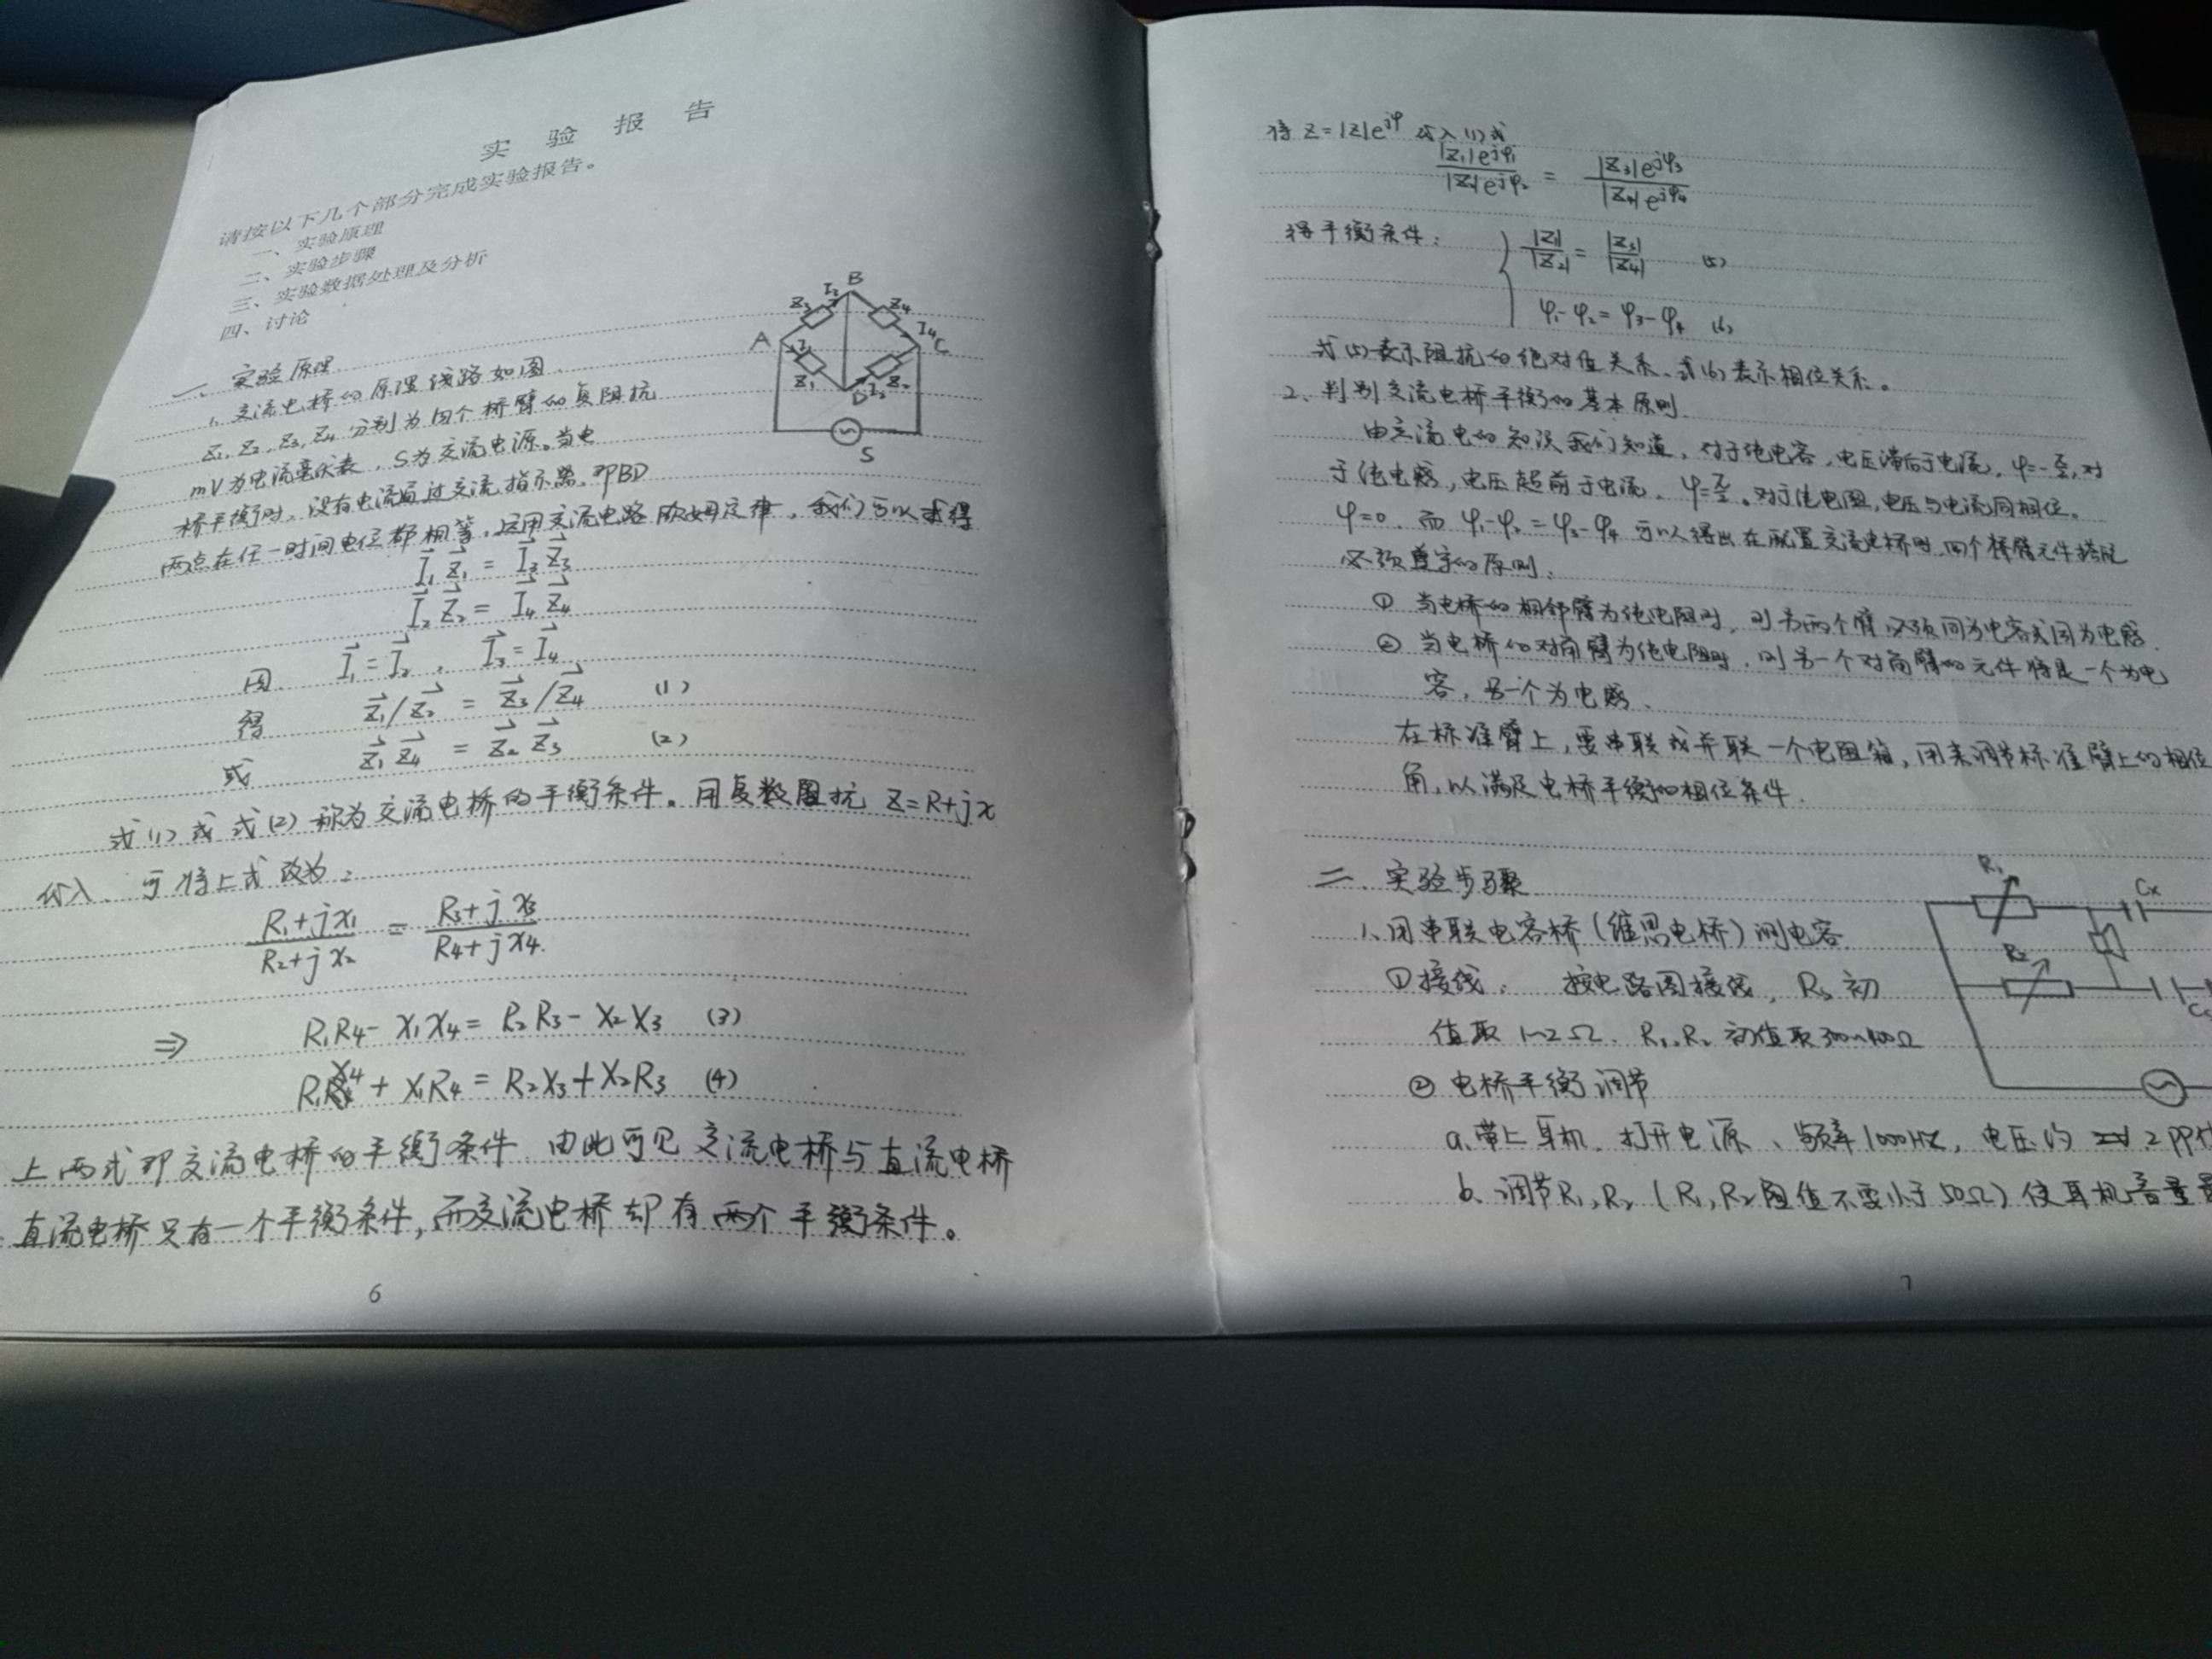 实 验 报 告
请按以下几个部分完成实验报告。
一、实验原理
二、实验步骤
三、实验数据处理及分析
四、讨论
一、实验原理
1、交流电桥的原理线路如图、
Z₁、Z₂、Z₃、Z₄ 分别为四个桥臂的复阻抗
mV为电流毫伏表，S为交流电源。当电
桥平衡时、没有电流通过交流指示器、即BD
两点在任一时间电位都相等，运用交流电路欧姆定律，我们可以求得
I₁ Z₁ = I₃ Z₃
I₂ Z₂ = I₄ Z₄
因 I₁ = I₂ ， I₃ = I₄
得 Z₁/Z₂ = Z₃/Z₄ (1)
或 Z₁ Z₄ = Z₂ Z₃ (2)
式(1)或式(2)称为交流电桥的平衡条件。用复数阻抗 Z=R+jx
代入、可将上式改为：
(R₁+jx₁)/(R₂+jx₂) = (R₃+jx₃)/(R₄+jx₄)
⇒ R₁R₄ - X₁X₄ = R₂R₃ - X₂X₃ (3)
R₁X₄ + X₁R₄ = R₂X₃ + X₂R₃ (4)
上两式即交流电桥的平衡条件 由此可见 交流电桥与直流电桥
直流电桥只有一个平衡条件，而交流电桥却有两个平衡条件。
6
Z₃ I₃ B Z₄ I₄ C
A I₁ Z₁ D I₂ Z₂
S
将 Z=|Z|e^jφ 代入(1)式
|Z₁|e^jφ₁/|Z₂|e^jφ₂ = |Z₃|e^jφ₃/|Z₄|e^jφ₄
得平衡条件： |Z₁|/|Z₂| = |Z₃|/|Z₄| (5)
φ₁-φ₂ = φ₃-φ₄ (6)
式(5)表示阻抗的绝对值关系、式(6)表示相位关系。
2、判别交流电桥平衡的基本原则
由交流电的知识我们知道，对于纯电容，电压滞后于电流，φ=-π/2，对
于纯电感，电压超前于电流，φ=π/2。对于纯电阻，电压与电流同相位。
φ=0．而 φ₁-φ₂ = φ₃-φ₄ 可以得出在配置交流电桥时 四个桥臂元件搭配
必须遵守的原则：
① 当电桥的相邻臂为纯电阻时，则另两个臂必须同为电容或同为电感．
② 当电桥的对角臂为纯电阻时，则另一个对角臂的元件将是一个为电
容，另一个为电感．
在标准臂上，要串联或并联一个电阻箱，用来调节标准臂上的相位
角，以满足电桥平衡的相位条件．
二、实验步骤
1、用串联电容桥（维恩电桥）测电容
①接线： 按电路图接线，Rs 初
值取 1~2Ω．R₁、R₂ 初值取300~400Ω
② 电桥平衡调节
a、带上耳机，打开电源、频率1000HZ，电压约 2
b、调节R₁、R₂（R₁、R₂阻值不要小于50Ω）使耳机音量
R₁ Cx
R₂
7